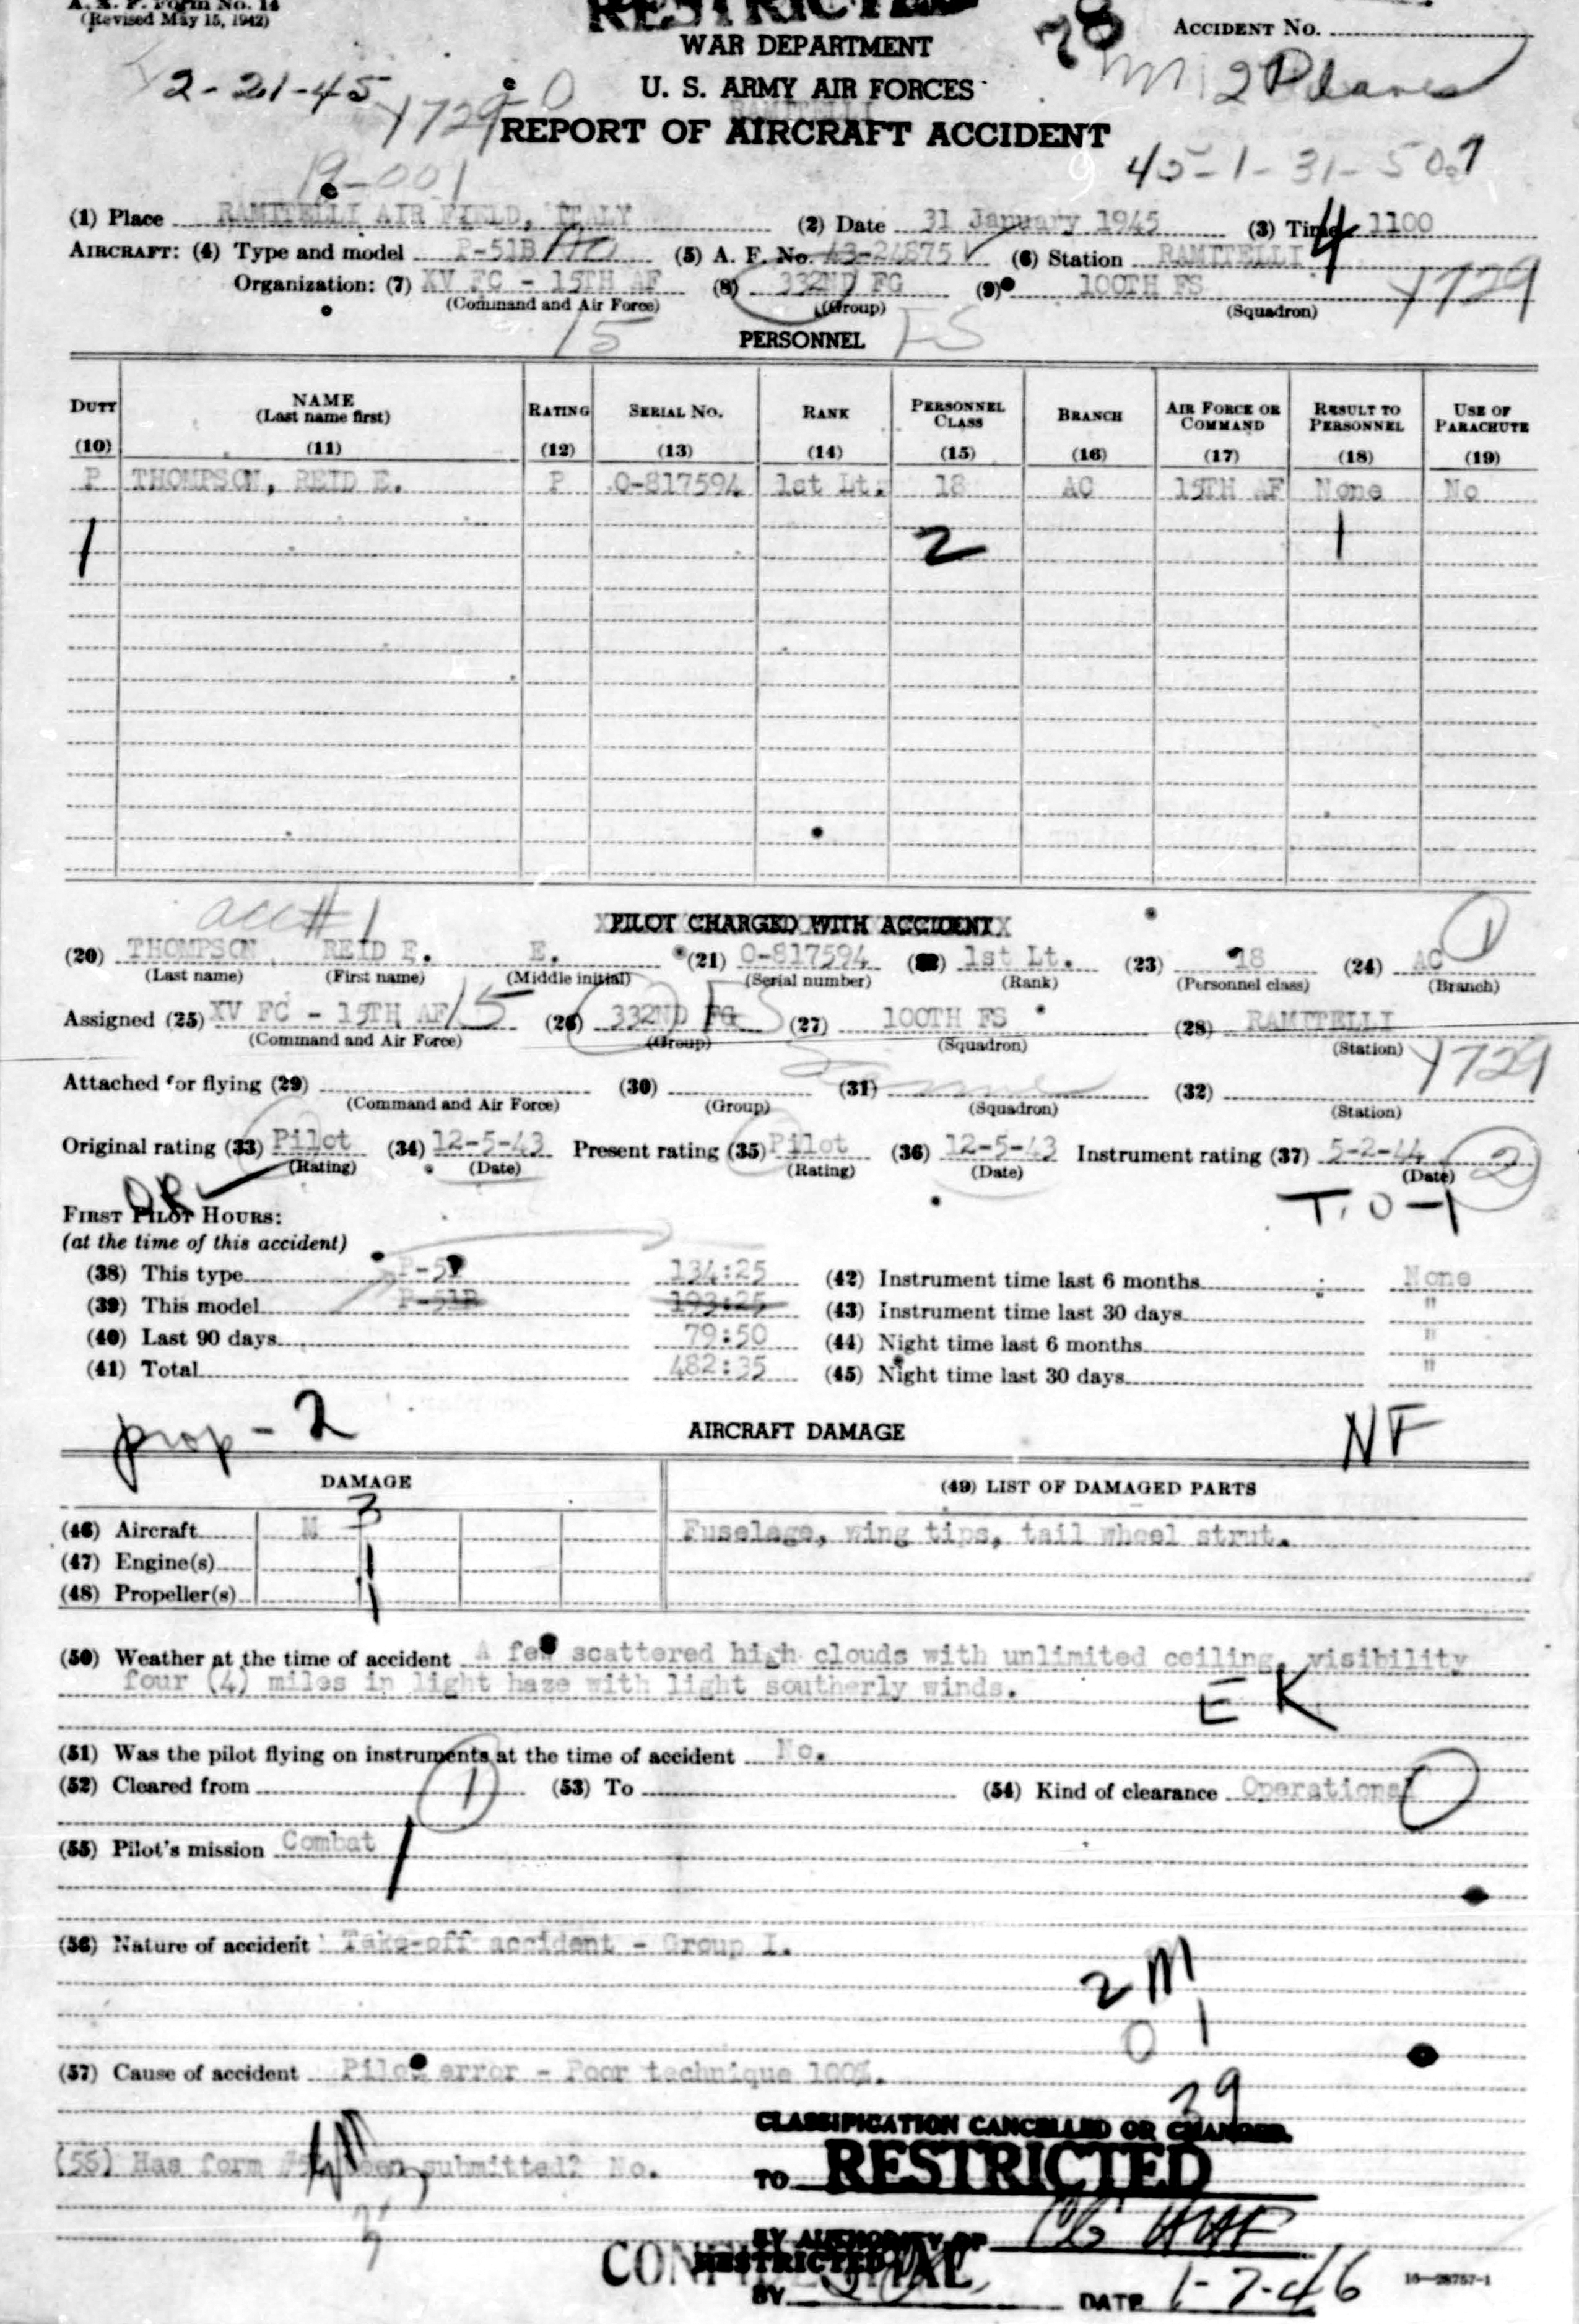 A. A. F. Form No. 14
(Revised May 15, 1942)
RESTRICTED
WAR DEPARTMENT
ACCIDENT NO.
2-21-45
U. S. ARMY AIR FORCES
2 Planes
Y729-0
REPORT OF AIRCRAFT ACCIDENT
45-1-31-507
19-001
(1) Place RAMITELLI AIR FIELD, ITALY (2) Date 31 January 1945 (3) Time 1100
4
AIRCRAFT: (4) Type and model P-51B (5) A. F. No. 43-24875 (6) Station RAMITELLI
Organization: (7) XV FC - 15TH AF (8) 332ND FG (9) 100TH FS Y729
(Command and Air Force) (Group) (Squadron)
15 PERSONNEL FS
DUTY NAME (Last name first) RATING SERIAL NO. RANK PERSONNEL CLASS BRANCH AIR FORCE OR COMMAND RESULT TO PERSONNEL USE OF PARACHUTE
(10) (11) (12) (13) (14) (15) (16) (17) (18) (19)
P THOMPSON, REID E. P O-817594 1st Lt. 18 AC 15TH AF None No
1 2 1
acc# 1
PILOT CHARGED WITH ACCIDENT
1
(20) THOMPSON REID E. E. (21) O-817594 (22) 1st Lt. (23) 18 (24) AC
(Last name) (First name) (Middle initial) (Serial number) (Rank) (Personnel class) (Branch)
Assigned (25) XV FC - 15TH AF 15 (26) 332ND FG FS (27) 100TH FS (28) RAMITELLI
(Command and Air Force) (Group) (Squadron) (Station)
Y729
Attached for flying (29) (30) (31) Same (32)
(Command and Air Force) (Group) (Squadron) (Station)
Original rating (33) Pilot (34) 12-5-43 Present rating (35) Pilot (36) 12-5-43 Instrument rating (37) 5-2-44 2
(Rating) (Date) (Rating) (Date) (Date)
T.O-1
FIRST PILOT HOURS:
(at the time of this accident)
(38) This type P-51 134:25 (42) Instrument time last 6 months None
(39) This model P-51B 193:25 (43) Instrument time last 30 days "
(40) Last 90 days 79:50 (44) Night time last 6 months "
(41) Total 482:35 (45) Night time last 30 days "
prop - 2
AIRCRAFT DAMAGE
NF
DAMAGE (49) LIST OF DAMAGED PARTS
(46) Aircraft M 3 Fuselage, wing tips, tail wheel strut.
(47) Engine(s) 1
(48) Propeller(s) 1
(50) Weather at the time of accident A few scattered high clouds with unlimited ceiling, visibility
four (4) miles in light haze with light southerly winds.
EK
(51) Was the pilot flying on instruments at the time of accident No.
(52) Cleared from 1 (53) To (54) Kind of clearance Operational 0
(55) Pilot's mission Combat 1
(56) Nature of accident Take-off accident - Group I.
2 M
0 1
(57) Cause of accident Pilot error - Poor technique 100%.
39
CLASSIFICATION CANCELLED OR CHANGED
(55) Has form been submitted? No.
TO RESTRICTED
BY AUTHORITY OF CG AAF
CONFIDENTIAL
RESTRICTED
BY DATE 1-7-46
16-28757-1